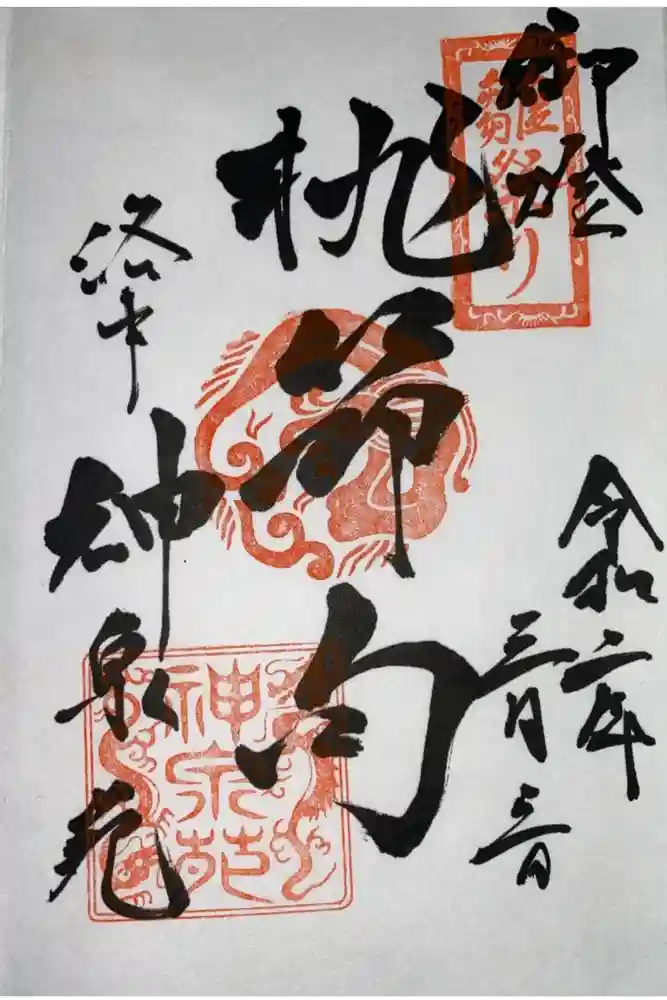 御燈
雛祭り
令和二年
三月三日
桃節句
洛中
神泉苑
神泉苑